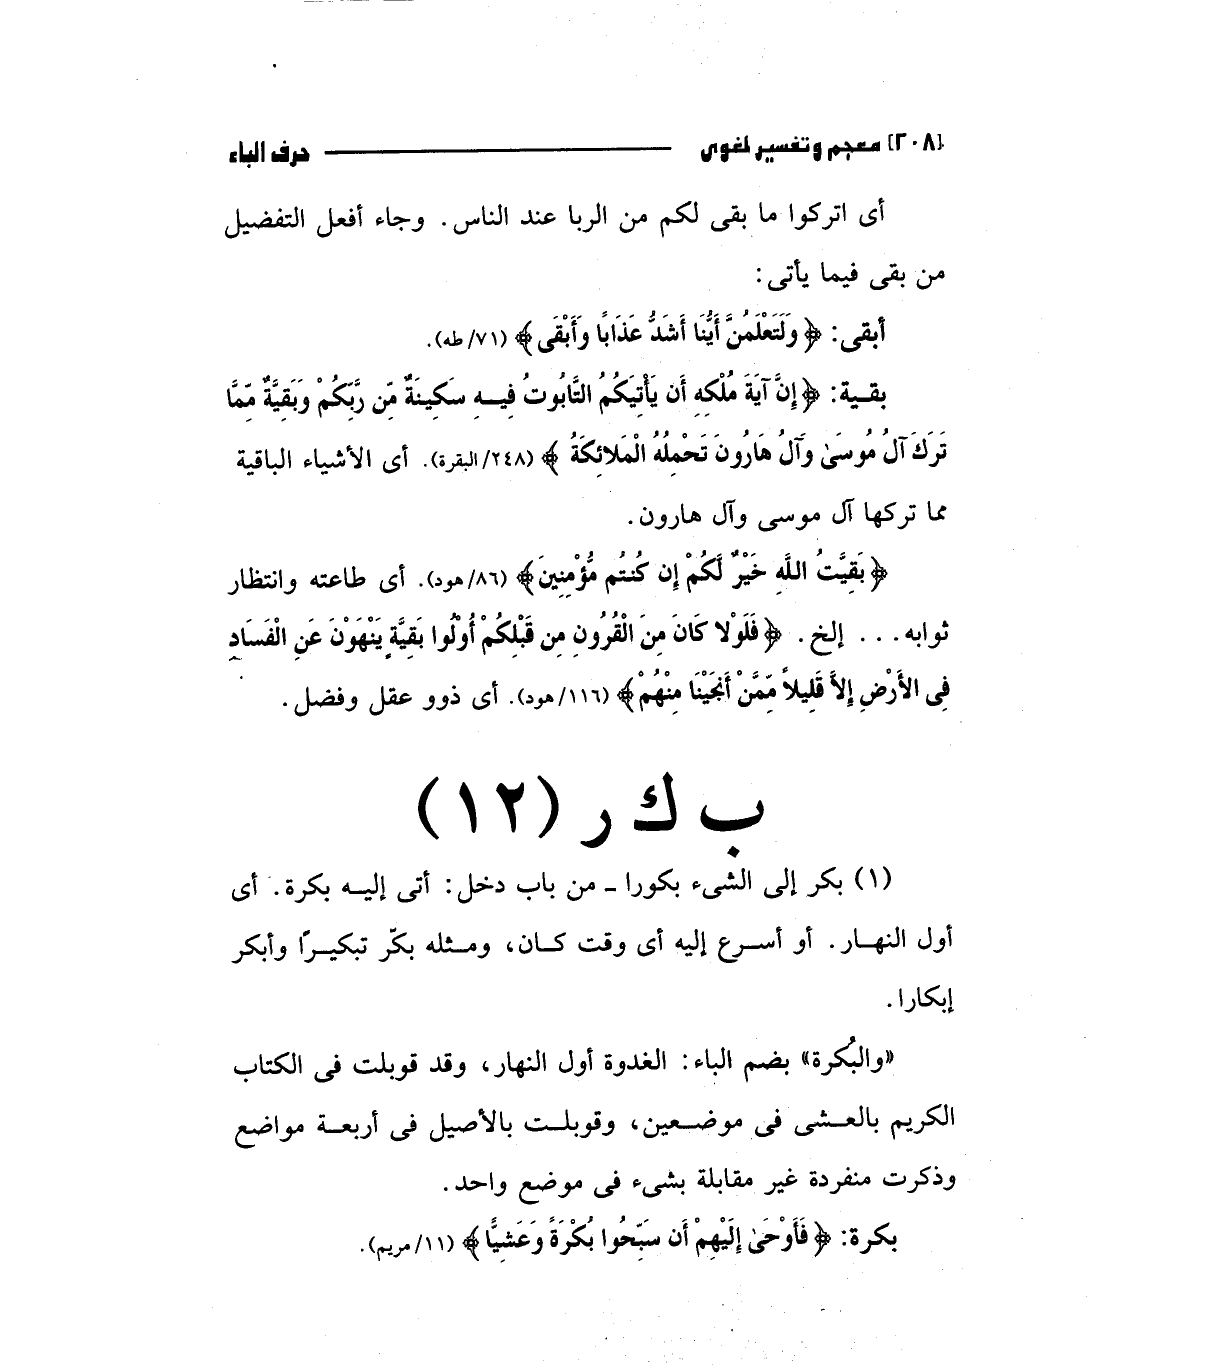 [٢٠٨] معجم وتفسير لغوى حرف الباء
أى اتركوا ما بقى لكم من الربا عند الناس. وجاء أفعل التفضيل
من بقى فيما يأتى:
أبقى: ﴿ وَلَتَعْلَمُنَّ أَيُّنَا أَشَدُّ عَذَابًا وَأَبْقَى﴾ (٧١/ طه).
بقـية: ﴿إِنَّ آيَةَ مُلْكِهِ أَن يَأْتِيَكُمُ التَّابُوتُ فِيـهِ سَكِينَةٌ مِّن رَّبِّكُمْ وَبَقِيَّةٌ مِّمَّا
تَرَكَ آلُ مُوسَىٰ وَآلُ هَارُونَ تَحْمِلُهُ الْمَلائِكَةُ ﴾ (٢٤٨/ البقرة). أى الأشياء الباقية
مما تركها آل موسى وآل هارون.
﴿بَقِيَّتُ اللَّهِ خَيْرٌ لَّكُمْ إِن كُنتُم مُّؤْمِنِينَ﴾ (٨٦/ هود). أى طاعته وانتظار
ثوابه... إلخ. ﴿فَلَوْلا كَانَ مِنَ الْقُرُونِ مِن قَبْلِكُمْ أُوْلُوا بَقِيَّةٍ يَنْهَوْنَ عَنِ الْفَسَادِ
فِى الأَرْضِ إِلاَّ قَلِيلاً مِّمَّنْ أَنجَيْنَا مِنْهُمْ﴾ (١١٦/ هود). أى ذوو عقل وفضل.
ب ك ر (١٢)
(١) بكر إلى الشىء بكورا - من باب دخل: أتى إليـه بكرة. أى
أول النهـار. أو أسـرع إليه أى وقت كـان، ومـثله بكّر تبكيـرًا وأبكر
إبكارا.
«والبُكرة» بضم الباء: الغدوة أول النهار، وقد قوبلت فى الكتاب
الكريم بالعـشى فى موضـعين، وقوبلـت بالأصيل فى أربعـة مواضع
وذكرت منفردة غير مقابلة بشىء فى موضع واحد.
بكرة: ﴿ فَأَوْحَىٰ إِلَيْهِمْ أَن سَبِّحُوا بُكْرَةً وَعَشِيًّا ﴾ (١١/ مريم).